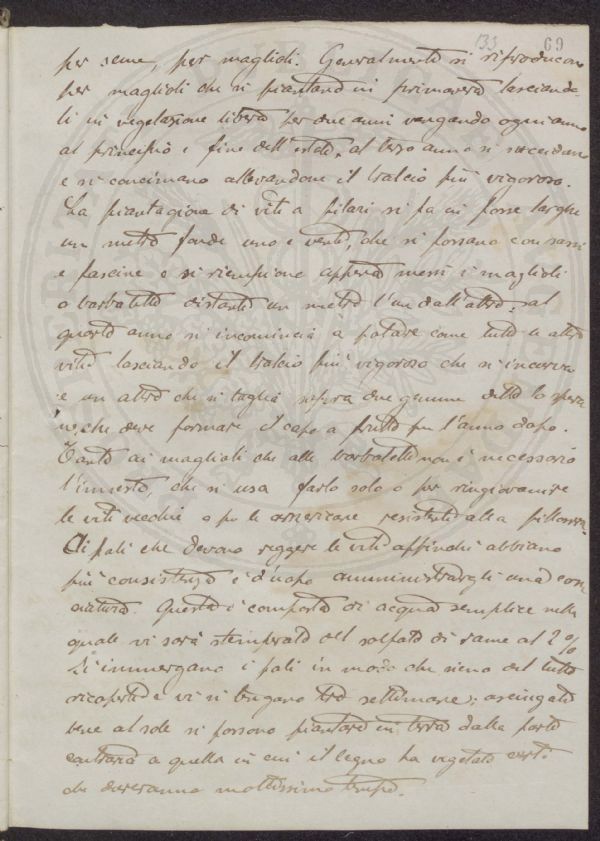 133 69
per seme, per maglioli. Generalmente si riproducono
per maglioli che si piantano in primavera lasciando-
li in vegetazione libera per due anni vangando ogni anno
al principio e fine dell'estate, al terzo anno si
e si concimano allevandone il tralcio più vigoroso.
La piantagione di viti a filari si fa in fosse larghe
un metro fonde uno e venti, che si fossano con sassi
e fascine e si riempiono appena messi i maglioli
o barbatelle distanti un metro l'un dall'altro; al
quarto anno si incomincia a potare come tutte le altre
viti lasciando il tralcio più vigoroso che si incurva
e un altro che si taglia sopra due gemme detto lo spero
ne, che deve formare il capo a frutto per l'anno dopo.
Tanto ai maglioli che alle barbatelle non è necessario
l'innesto, che si usa farlo solo o per ringiovanire
le viti vecchie o per le americane resistenti alla fillossera.
Ai pali che devono reggere le viti affinchè abbiano
più consistenza è d'uopo amministrargli una con-
ciatura. Questa è composta di acqua semplice nella
quale vi sarà stemperato del solfato di rame al 2%
Si immergano i pali in modo che sieno del tutto
ricoperti e vi si tengano tre settimane; asciugati
bene al sole si possono piantare in terra dalla parte
contraria a quella in cui il legno ha vegetato certi
che dureranno moltissimo tempo.